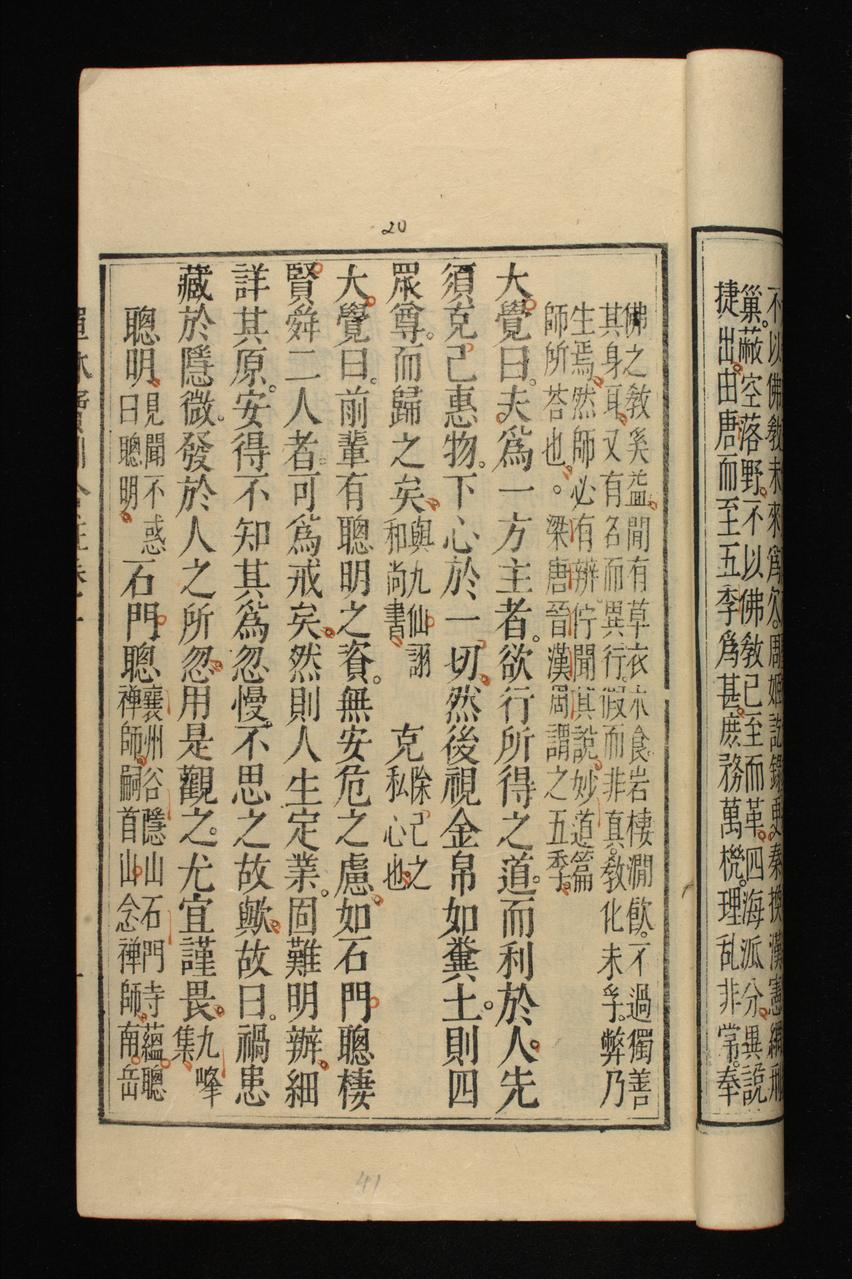 不以佛教未來為欠。周姬記錄更秦換漢憲綱刑
巢。蔽空落野。不以佛教已至而革。四海派分。異說
捷出。由唐而至五季為甚。庶務萬機。理乱非常。奉
20
佛之教奚益。間有草衣木食岩棲澗飲。不過獨善
其身耳。又有名而異行。假而非真。教化未孚。弊乃
生焉。然師必有辨。佇聞其說。妙道篇
師所答也。。梁唐晉漢周謂之五季。
大覺曰。夫為一方主者。欲行所得之道。而利於人。先
須克己惠物。下心於一切。然後視金帛如糞土。則四
眾尊。而歸之矣。與九仙詡和尚書 克除己之私心也
大覺曰。前輩有聰明之資。無安危之慮。如石門聰棲
賢舜二人者。可為戒矣。然則人生定業。固難明辦。細
詳其原。安得不知其為忽慢。不思之故歟。故曰。禍患
藏於隱微。發於人之所忽。用是觀之。尤宜謹畏。九峰集
聰明見聞不惑曰聰明。石門聰襄州谷隱山石門寺蘊聰禪師。嗣首山念禪師。南岳
41